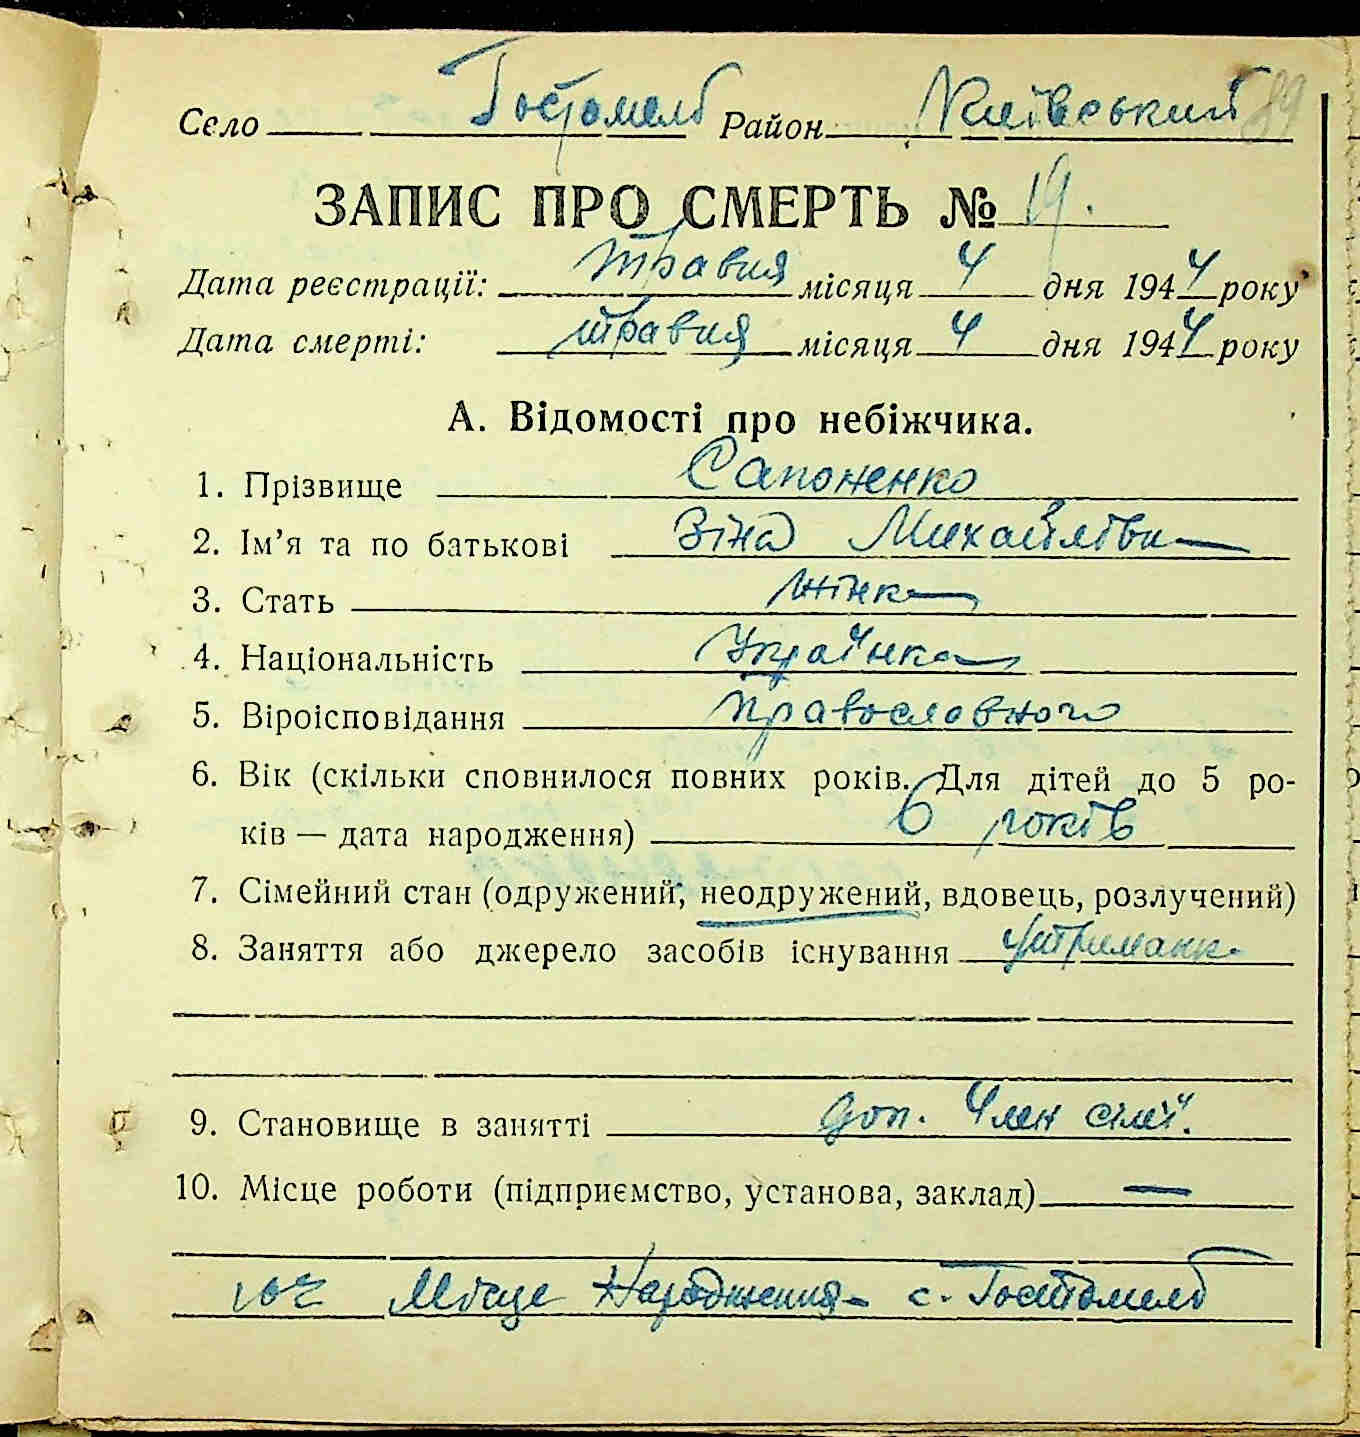 Село Гостомель Район Київський 89
ЗАПИС ПРО СМЕРТЬ № 19.
Дата реєстрації: травня місяця 4 дня 1944 року
Дата смерті: травня місяця 4 дня 1944 року
А. Відомості про небіжчика.
1. Прізвище Сапоненко
2. Ім’я та по батькові Зіна Михайлівн
3. Стать жінка
4. Національність Українка
5. Віроісповідання православного
6. Вік (скільки сповнилося повних років. Для дітей до 5 ро-
ків — дата народження) 6 років
7. Сімейний стан (одружений, неодружений, вдовець, розлучений)
8. Заняття або джерело засобів існування утриманк.
9. Становище в занятті доп. Член сімї.
10. Місце роботи (підприємство, установа, заклад) —
Місце Народження - с. Гостомель